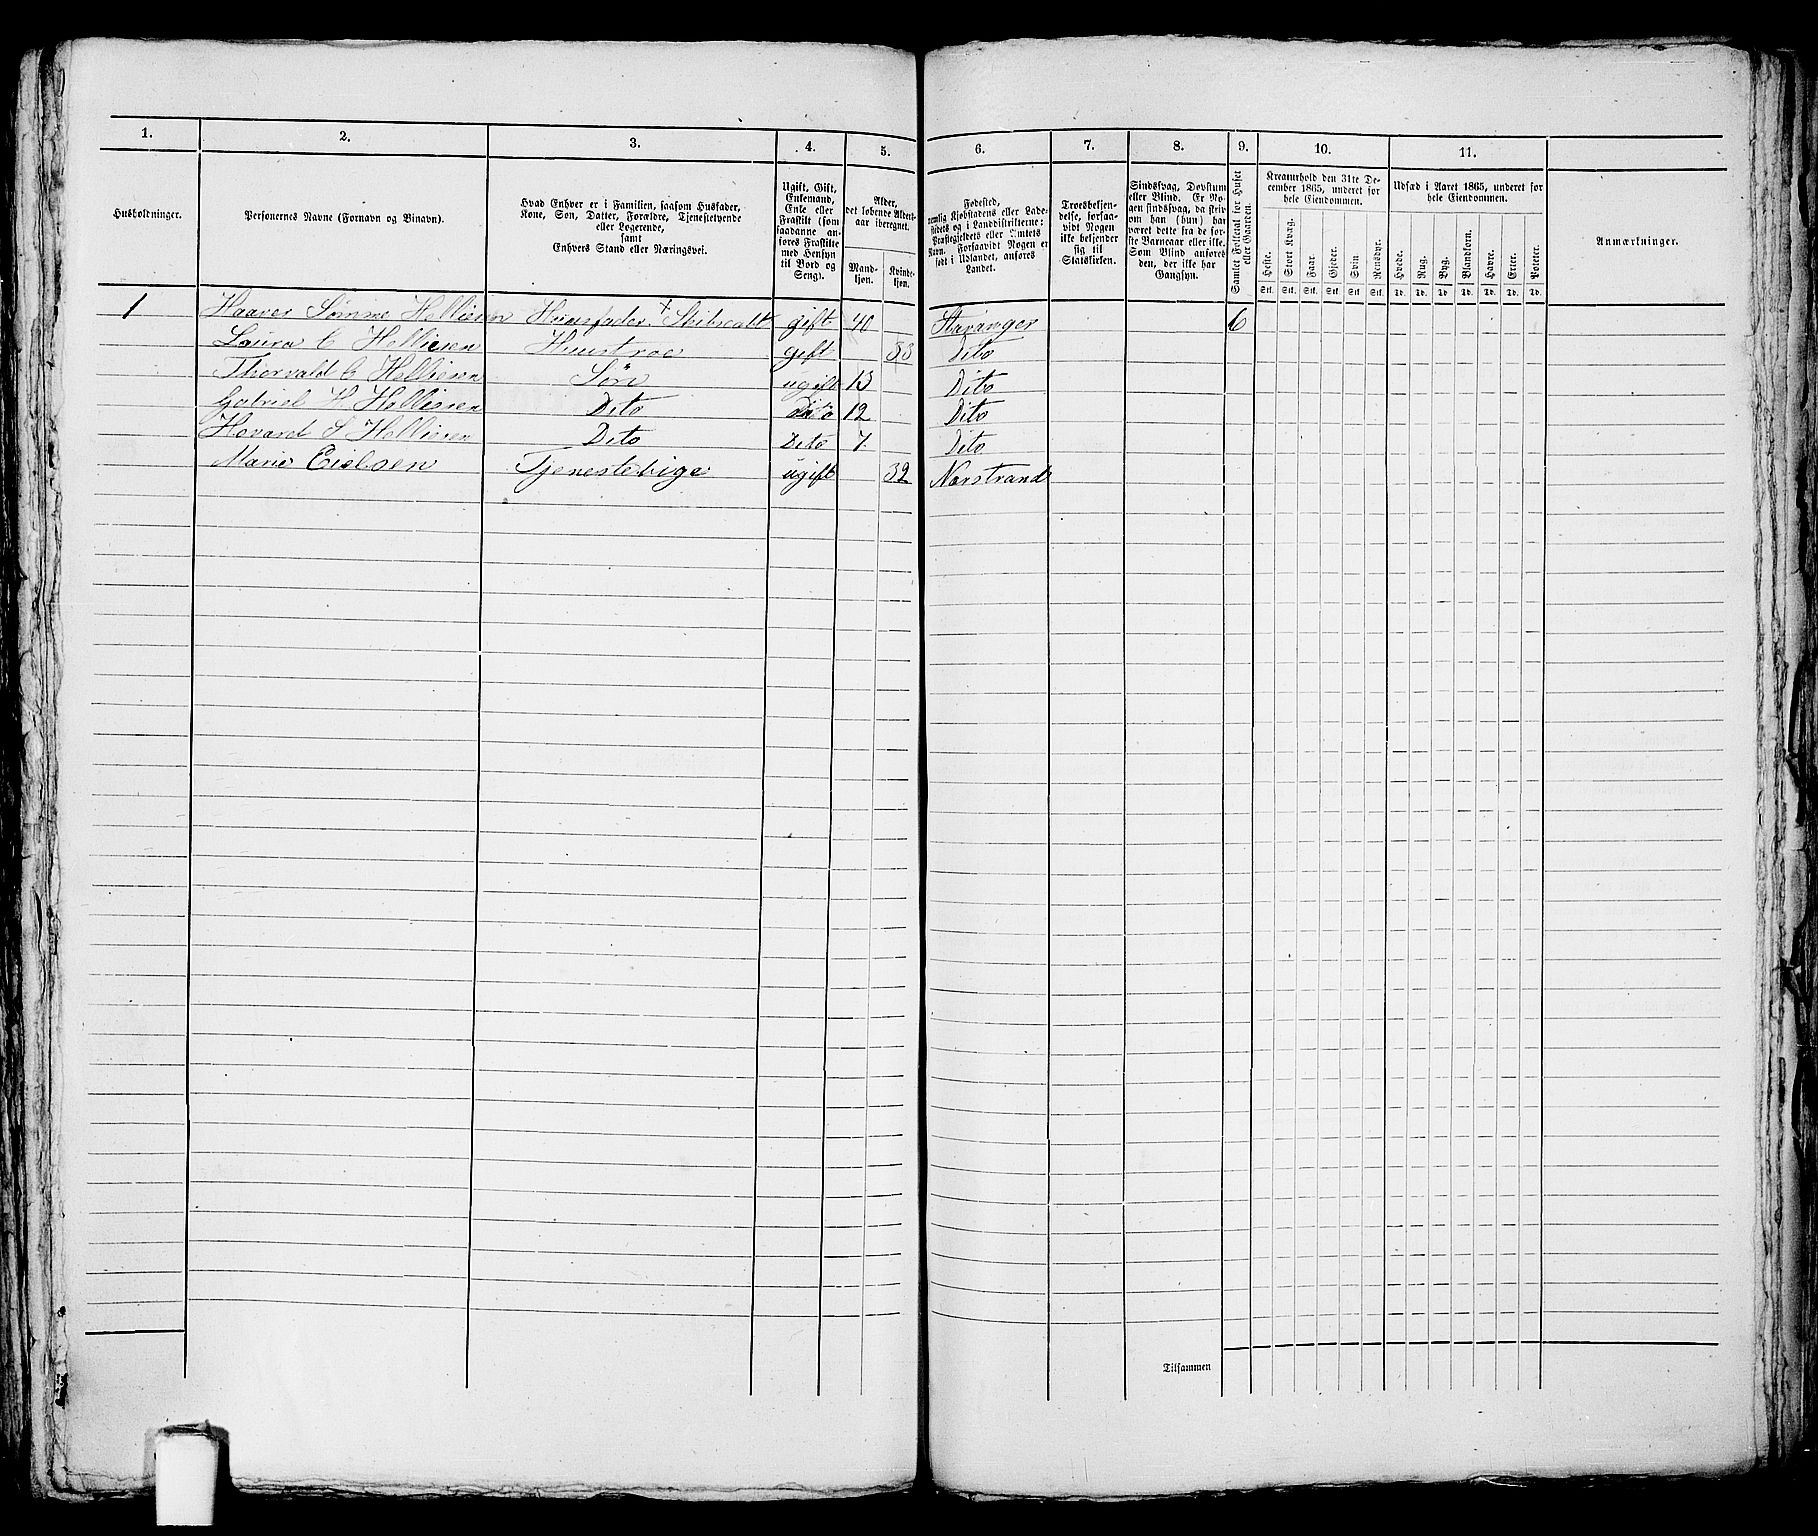 1. 2. 3. 4. 5. 6. 7. 8. 9. 10. 11.
Husholdninger.
Personernes Navne (Fornavn og Binavn).
Hvad Enhver er i Familien, saasom Husfader,
Kone, Søn, Datter, Forældre, Tjenestetyende
eller Logerende,
samt
Enhvers Stand eller Næringsvei.
Ugift, Gift,
Enkemand,
Enke eller
Fraskilt (som
saadanne an-
føres Fraskilte
med Hensyn
til Bord og
Seng).
Alder,
det løbende Alders-
aar iberegnet.
Mand-
kjøn.
Kvinde-
kjøn.
Fødested,
nemlig Kjøbstadens eller Lade-
stedets og i Landdistrikterne:
Præstegjeldets eller Amtets
Navn. Forsaavidt Nogen er
født i Udlandet, anføres
Landet.
Troesbekjen-
delse, forsaa-
vidt Nogen
ikke bekjender
sig til
Statskirken.
Sindssvag, Døvstum
eller Blind. Er No-
gen sindssvag, da skriv-
om han (hun) har
været dette fra de før-
ste Barneaar eller ikke.
Som Blind anføres
den, der ikke har
Gangsyn.
Samlet Folketal for Huset
eller Gaarden.
Kreaturhold den 31te De-
cember 1865, underet for
hele Eiendommen.
Heste. Stort Kvæg. Faar. Gjeder. Svin. Rensdyr.
Stk. Stk. Stk. Stk. Stk. Stk.
Udsæd i Aaret 1865, underet for
hele Eiendommen.
Hvede. Rug. Byg. Blandkorn. Havre. Erter. Poteter.
Td. Td. Td. Td. Td. Td. Td.
Anmærkninger.
1 Haaver Sømme Helliesen Huusfader + gift 40 Stavanger 6
Laura C Helliesen Huustroe gift 33 Dito
Thorvald C Helliesen Søn ugift 13 Dito
Gabriel H Helliesen Dito Dito 12 Dito
Hovard S Helliesen Dito Dito 7 Dito
Marie Eielsen Tjenestepige ugift 32 Nerstrand
Tilsammen